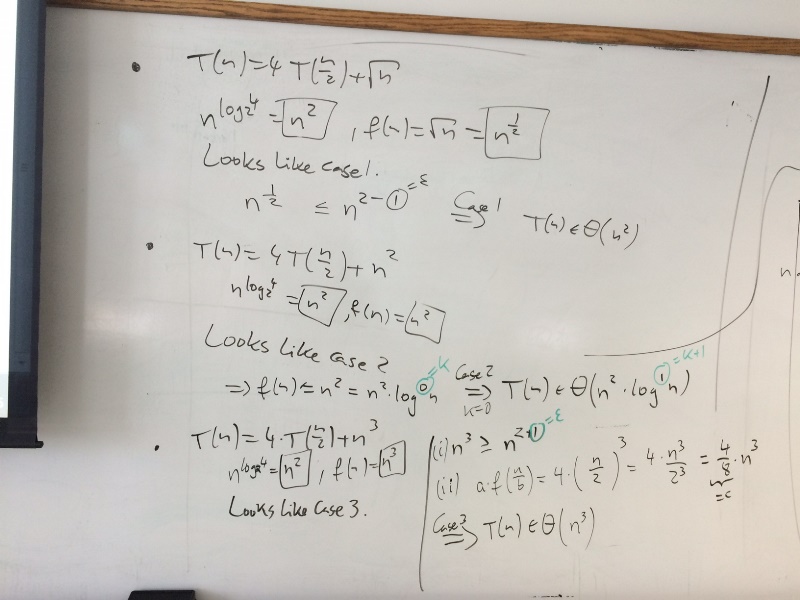 • T(n) = 4 T(n/2) + √n
n^log₂4 = n² , f(n) = √n = n^½
Looks like case 1.
n^½ ≤ n^(2-1) =ε Case 1 ⇒ T(n) ∈ Θ(n²)
• T(n) = 4 T(n/2) + n²
n^log₂4 = n² , f(n) = n²
Looks like case 2
⇒ f(n) ≤ n² = n² · log⁰ n =k Case 2 ⇒ k=0 T(n) ∈ Θ(n² · log¹ n) =k+1
• T(n) = 4 · T(n/2) + n³
n^log₂4 = n² , f(n) = n³
Looks like case 3.
(i) n³ ≥ n^(2+1) =ε
(ii) a·f(n/b) = 4 · (n/2)³ = 4·n³/2³ = 4/8 · n³
=c
Case 3 ⇒ T(n) ∈ Θ(n³)
n